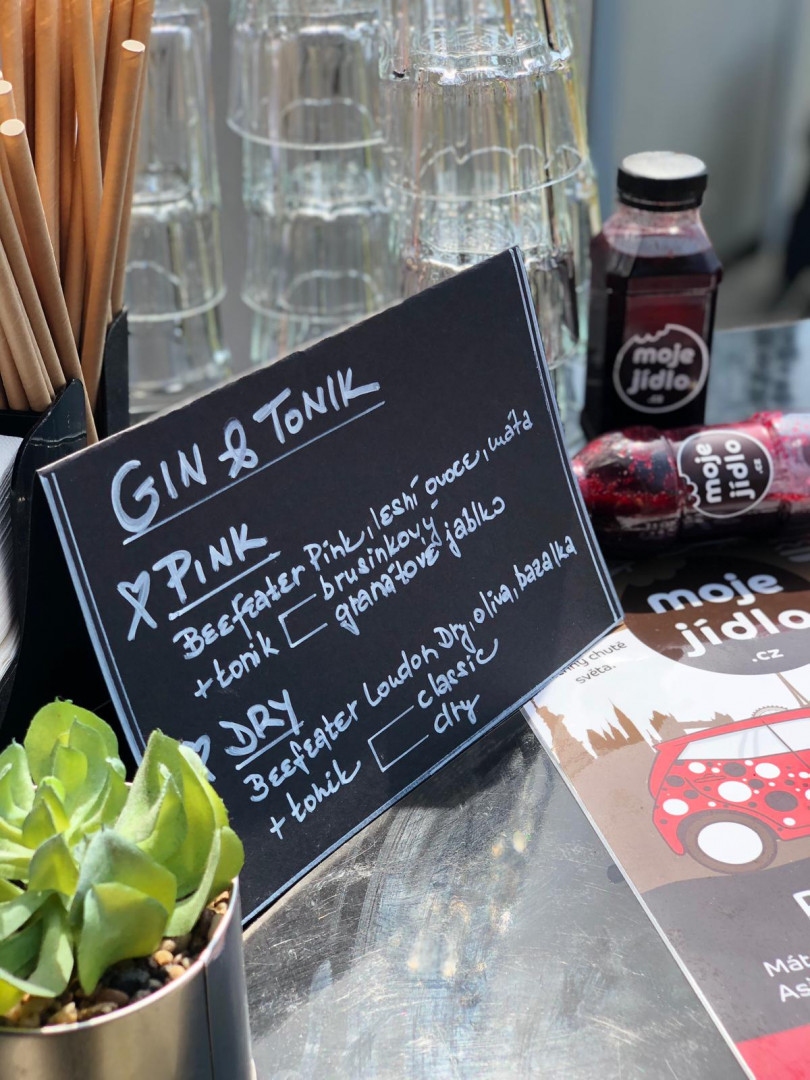 GIN & TONIK
PINK
Beefeater Pink, lesní ovoce, máta
+ tonik brusinkový
granátové jablko
DRY
Beefeater London Dry, oliva, bazalka
+ tonik classic
dry
moje
jídlo
.cz
moje
jídlo
.cz
moje
jídlo
.cz
chutě
světa.